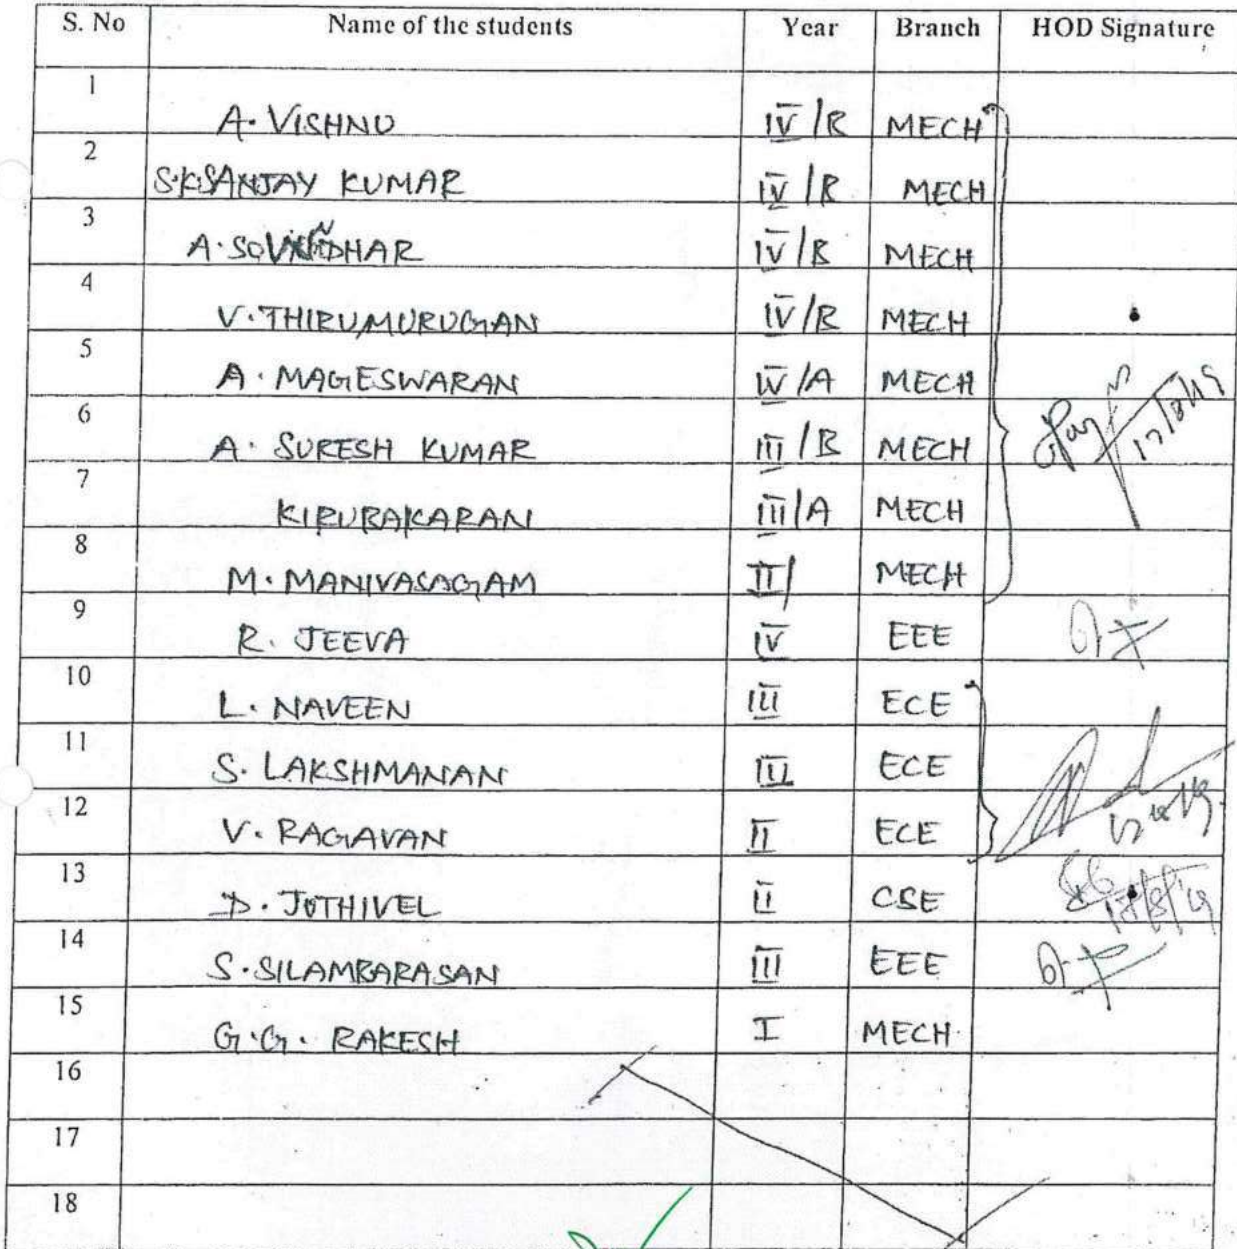 S. No Name of the students Year Branch HOD Signature
1 A. VISHNU IV/B MECH
2 S.K.SANJAY KUMAR IV/B MECH
3 A. IV/B MECH
4 V. THIRUMURUGAN IV/B MECH
5 A. MAGESWARAN IV/A MECH
6 A. SURESH KUMAR III/B MECH
17/8/19
7 KIRUBAKARAN III/A MECH
8 M. MANIVASAGAM II/ MECH
9 R. JEEVA IV EEE
10 L. NAVEEN III ECE
11 S. LAKSHMANAN III ECE
12 V. RAGAVAN II ECE
13 D. JOTHIVEL II CSE
14 S. SILAMBARASAN III EEE
15 G.G. RAKESH I MECH
16
17
18